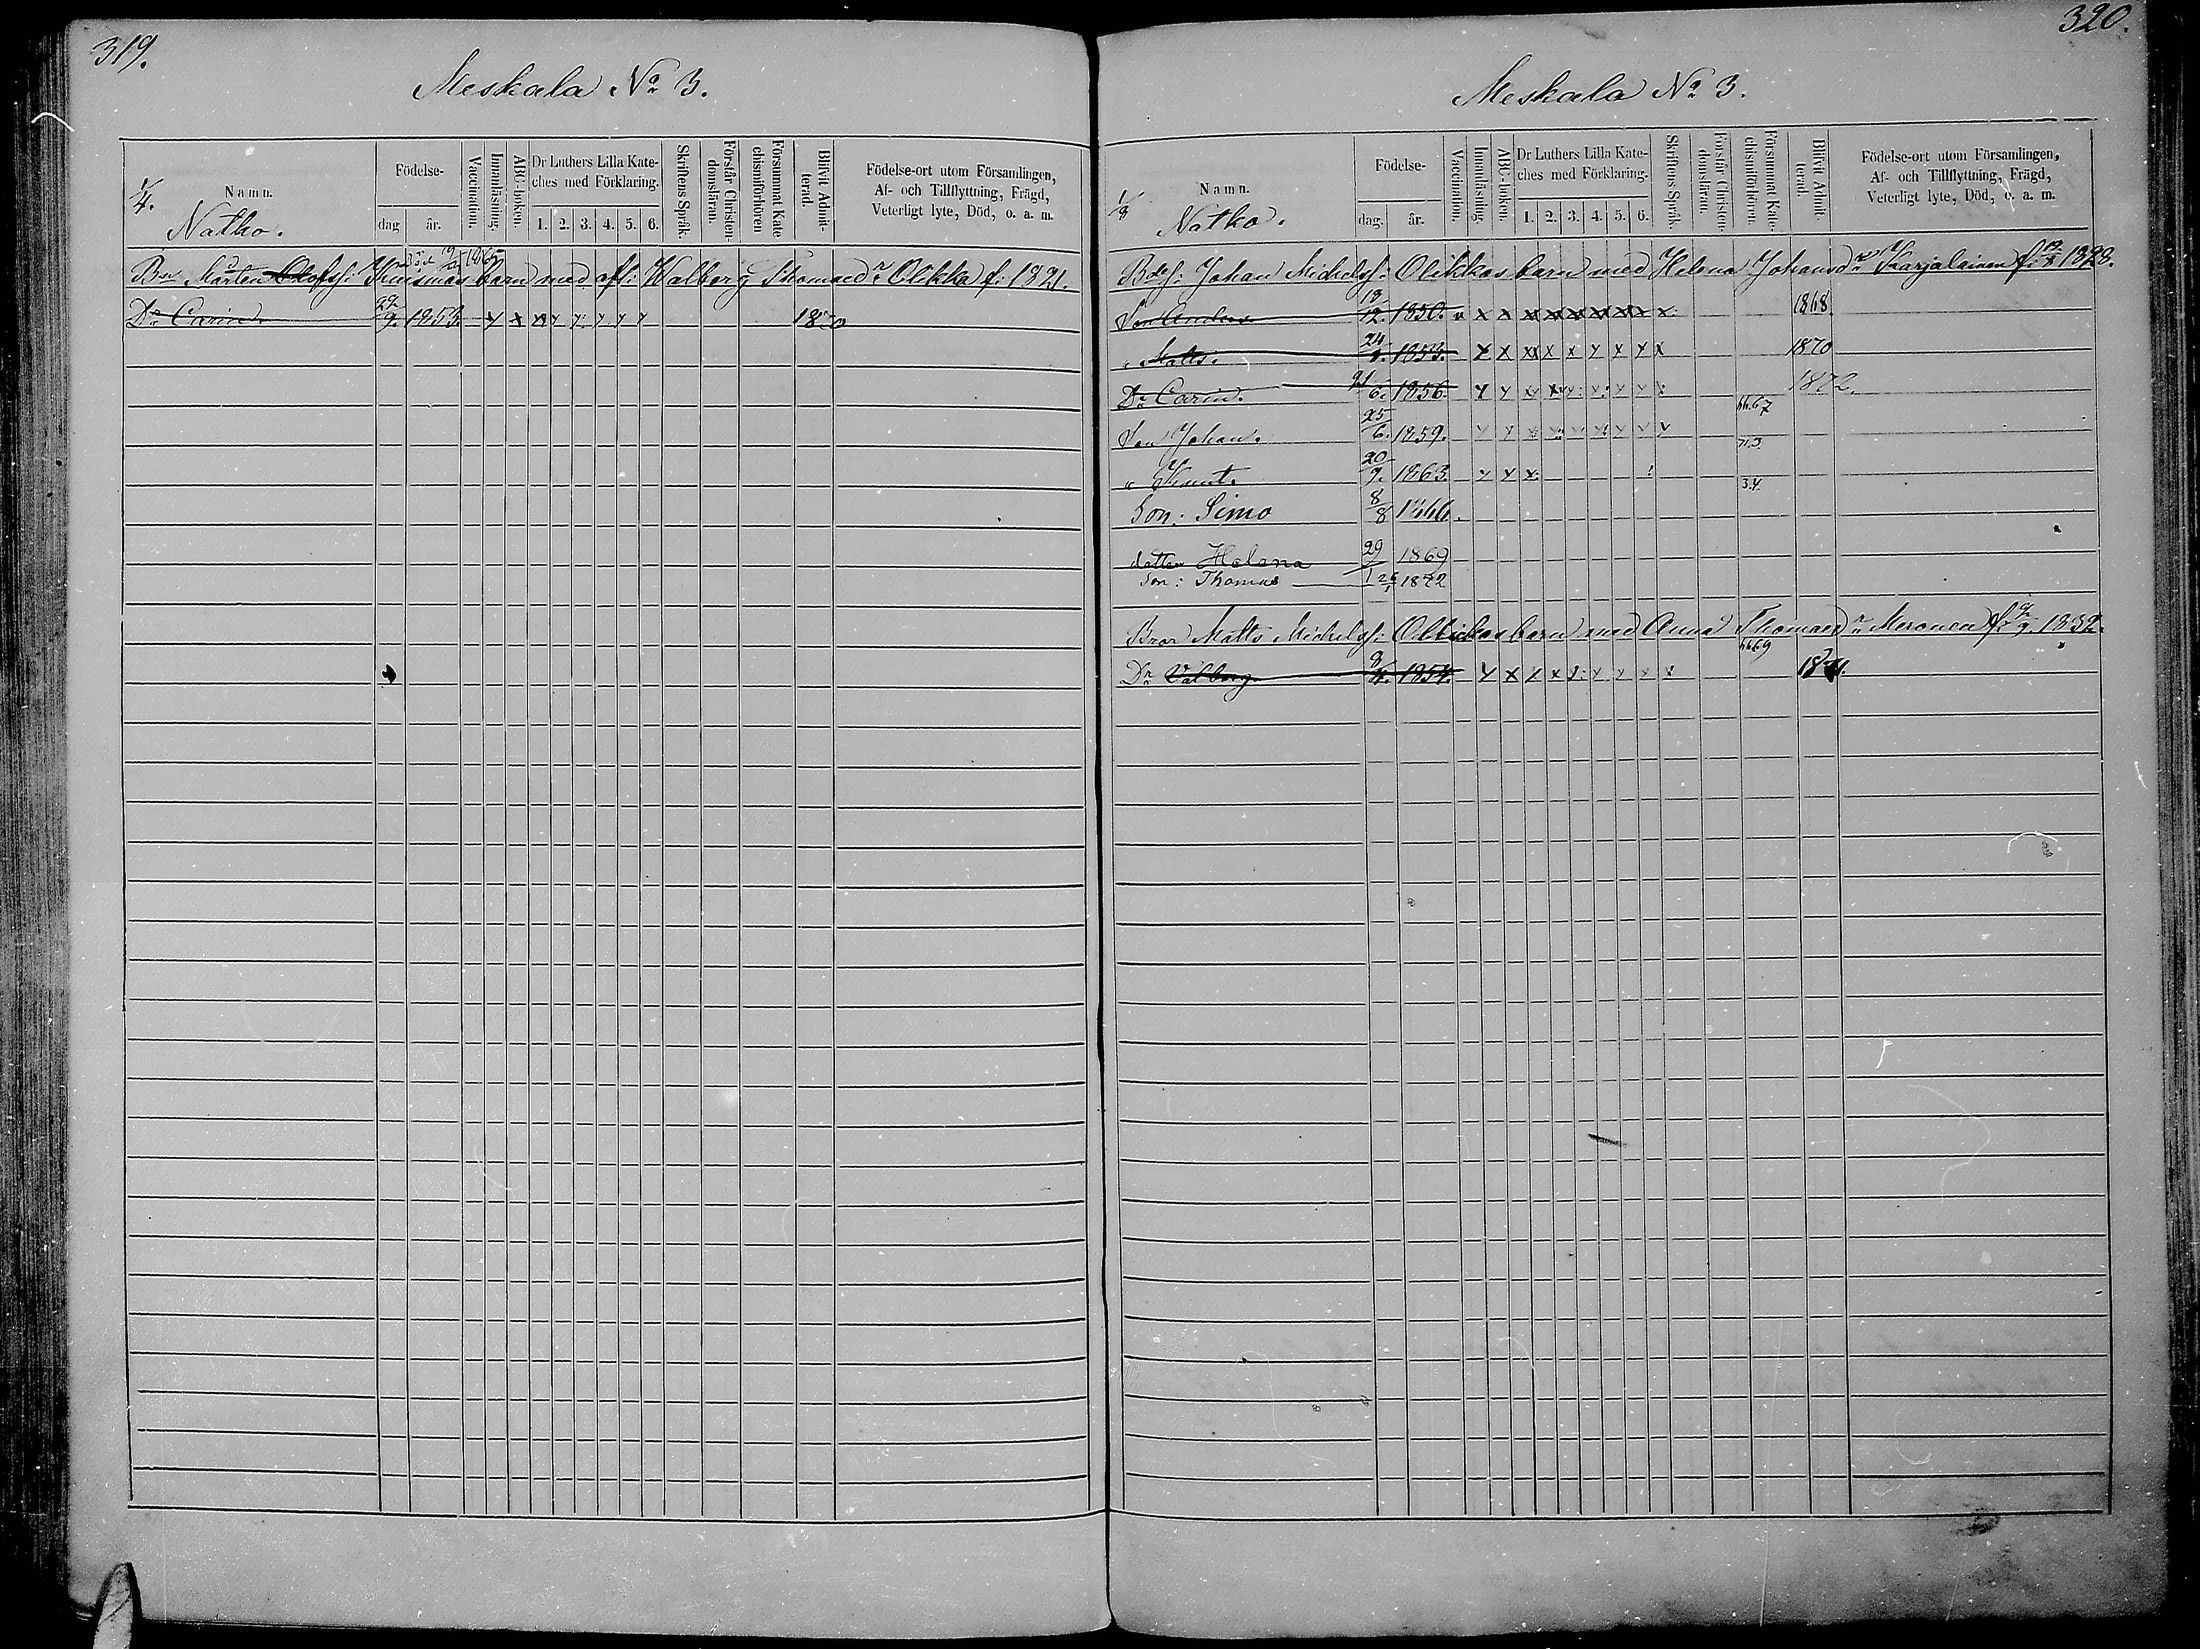 319.
Meskala No 3.
1/4.
Namn.
Födelse-
dag
år.
Vaccination.
Innanläsning.
ABC-boken.
Dr Luthers Lilla Kate-
ches med Förklaring.
1. 2. 3. 4. 5. 6.
Skriftens Språk.
Förstår Christen-
domsläran.
Försummat Kate
chismiförhören
Blifvit Admit-
terad.
Födelse-ort utom Församlingen,
Af- och Tillflyttning, Frägd,
Veterligt lyte, Död, o. a. m.
Natko.
Mårten Olofss: barn med afl: Walborg Thomaed:r Olikka f: 1821.
Dr Carin. 29/9. 1853. x x x y y y y y 1870
320.
Meskala No 3.
1/3
Namn.
Födelse-
dag.
år.
Vaccination.
Innanläsning.
ABC-boken.
Dr Luthers Lilla Kate-
ches med Förklaring.
1. 2. 3. 4. 5. 6.
Skriftens Språk.
Förstår Christen-
domsläran.
Försummat Kate-
chismiförhören.
Blifvit Admit-
terad.
Födelse-ort utom Församlingen,
Af- och Tillflyttning, Frägd,
Veterligt lyte, Död, o. a. m.
Natko.
Johan Michelss: Olikkas barn med Helena Johansd:r Karjalainen f: 1828.
Son Anders. 18/12. 1850. v x x x x x x x x x 1868.
" Matts. 24/ 1853. x x x x x y x y x 1870
Dr Carin. 21/6. 1856. x y x x y y y y 1872.
66.67
Son Johan. 25/6. 1859. y y x y y y y y y
71.3
" Knut. 20/9. 1863. y y x
3.4.
Son. Simo 8/8 1866.
dotter Helena 29/1 1869
Son: Thomas 1872
Bror Matts Michelss: Olikkas barn med Anna Thomaed:r Meronen f: 1832.
6669
Dr Valborg 8/4. 1854. y x x x y y y y 1871.